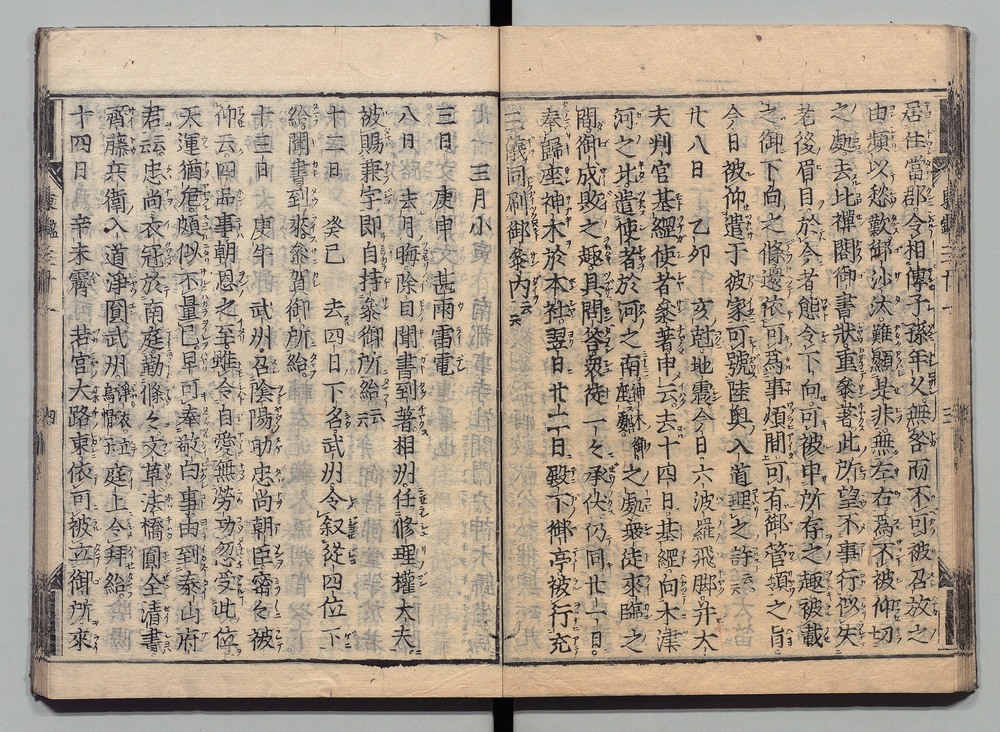 居住當郡令相傳子孫年久無咎而不可被召放之
由頻以愁歎御沙汰難顯是非無左右爲不被仰切
之處去比禪閤御書狀重參著此所望不事行似失
老後眉目於今者態令下向可被申所存之趣被載
之御下向之條還依可爲事煩閒可有御管領之旨
今日被仰遣于彼家司號陸奥入道理之許云云
廿八日 乙卯 亥尅地震今日六波羅飛脚并大
夫判官基經使者參著申云去十四日基經向木津
河之北遣使者於河之南神木御座所之處衆徒來臨之
問御成敗之趣具問答衆徒一々承伏仍同廿一日
奉歸座神木於本社翌日廿二日殿下御亭被行充
三議同刷御參内云云
三月小
三日 庚申 甚雨雷電
八日 去月晦除目聞書到著相州任修理權大夫
被賜兼字即自持參御所給云云
十三日 癸巳 去四日下名武州令叙從四位下
給聞書到來參賀御所給
十三日 庚午 武州召陰陽助忠尚朝臣密々被
仰云四品事朝恩之至雖令自愛無勞功忽受此位
天運猶危頗似不量已早可奉敬白事由到泰山府
君云忠尚衣冠於南庭勤條々文草法橋圓全清書
齊藤兵衛入道淨圓武州淨衣立烏帽子庭上令拜給
十四日 辛未 霽 若宮大路東依可被立御所來
東鑑三十一 三
東鑑三十一 四